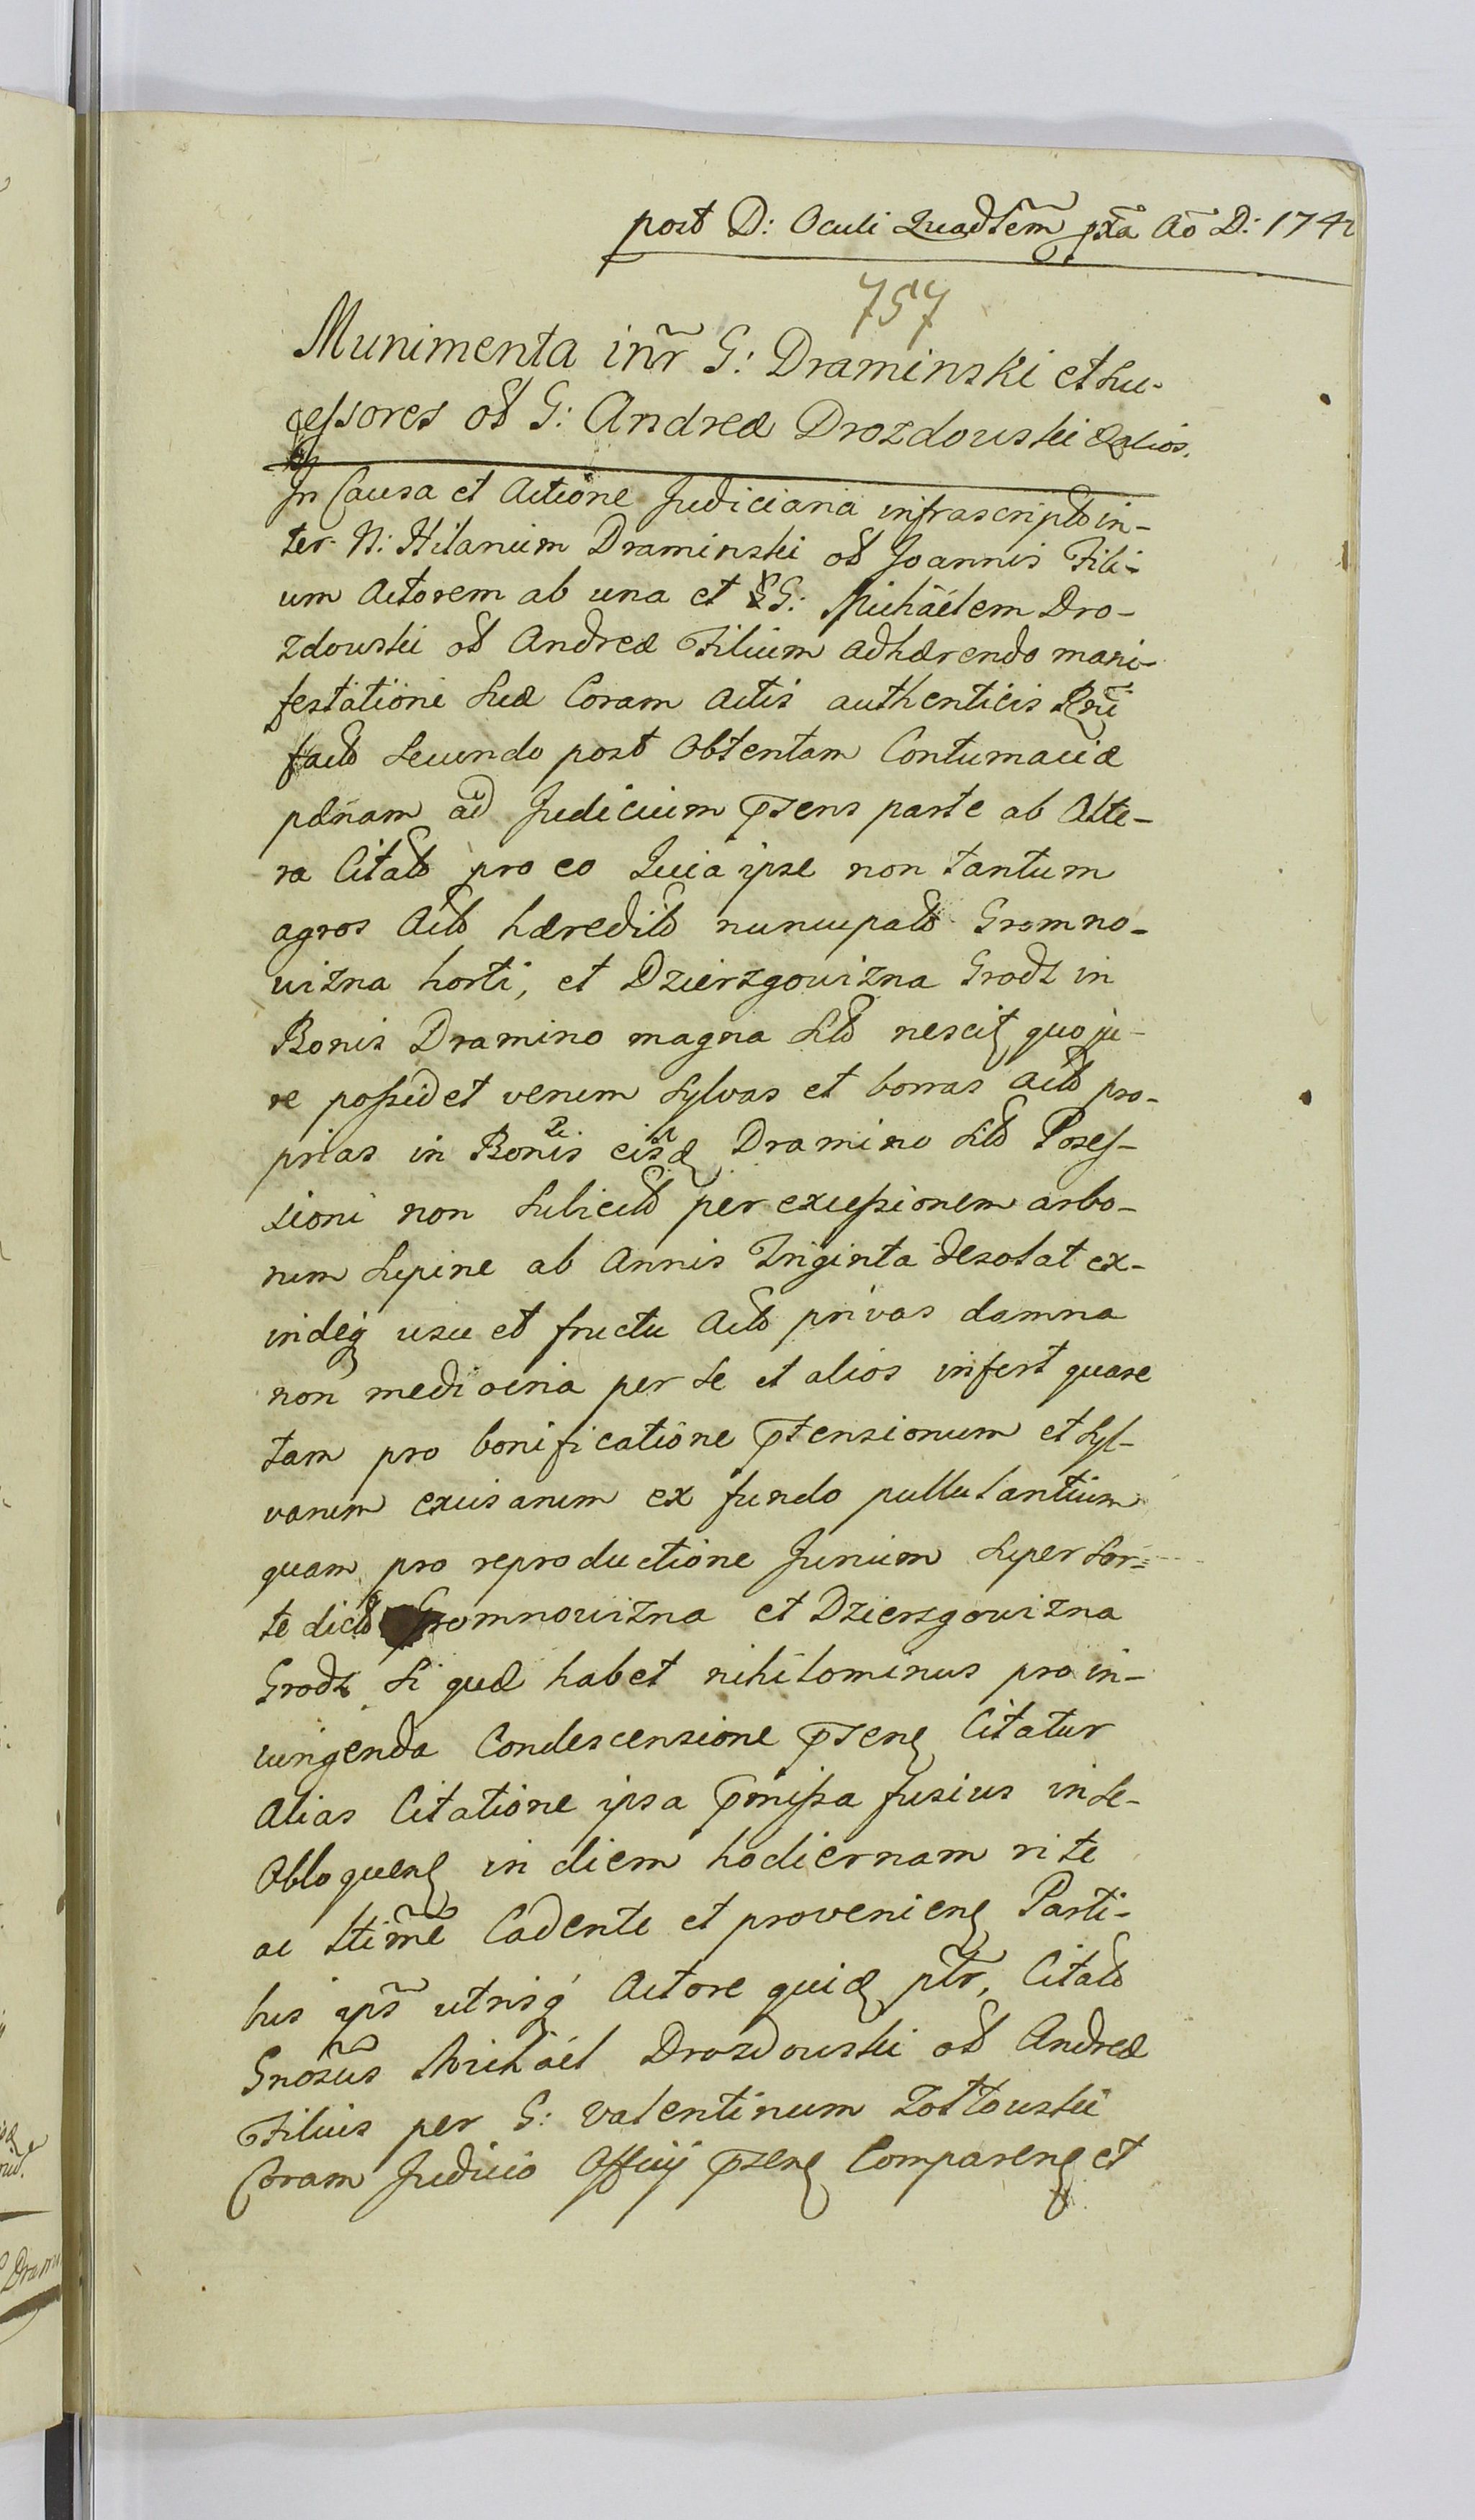 post D: Oculi Quadłem pxa Ao D: 174
757
Munimenta inr G: Draminski et Su-
cessores oł G: Andreæ Drozdowski & alios.
In Causa et Actione Judiciaria infrascripta in-
ter N: Hilarium Draminski oł Joannis Fili-
um Actorem ab una et G: Michäelem Dro-
zdowski oł Andreæ Filium adhærendo mani-
festationi suæ Coram Actis authenticis
facta Secundo post obtentam Contumaciæ
pænam ad Judicium pzens parte ab Alte-
ra Citato pro eo Quia ipse non tantum
agros Acto hæredito nuncupato Gromno-
wizna horti, et Dzierzgowizna Grodz in
Bonis Dramino magna sito nescitq quo ju-
re possidet verum Sylvas et borras Acto pro-
prias in Bonis eisd Dramino sito Poses-
sioni non Subiecto per excessionem arbo-
rum Supine ab Annis Triginta desolat ex-
indeq usu et fructu Acto privas damna
non mediocria per se et alios infert quare
tam pro bonificatione ptensionum et Syl-
varum excisarum ex fundo pullulantium
quam pro reproductione Jurium Super Sor-
te dicto Gromnowizna et Dzierzgowizna
Grodz Si quæ habet nihilominus pro in-
iungenda Condescensione pzens Citatur
Alias Citatione ipsa pmissa fusius in se
Obloquens in diem hodiernam rite
ac ltime Cadente et provenienę Parti-
bus ips utrisq Actore quid ptr, Citato
Gnosus Michäel Drozdowski oł Andreæ
Filius per G: Valentinum Zottowski
Coram Judicio Officij pzens Comparens et